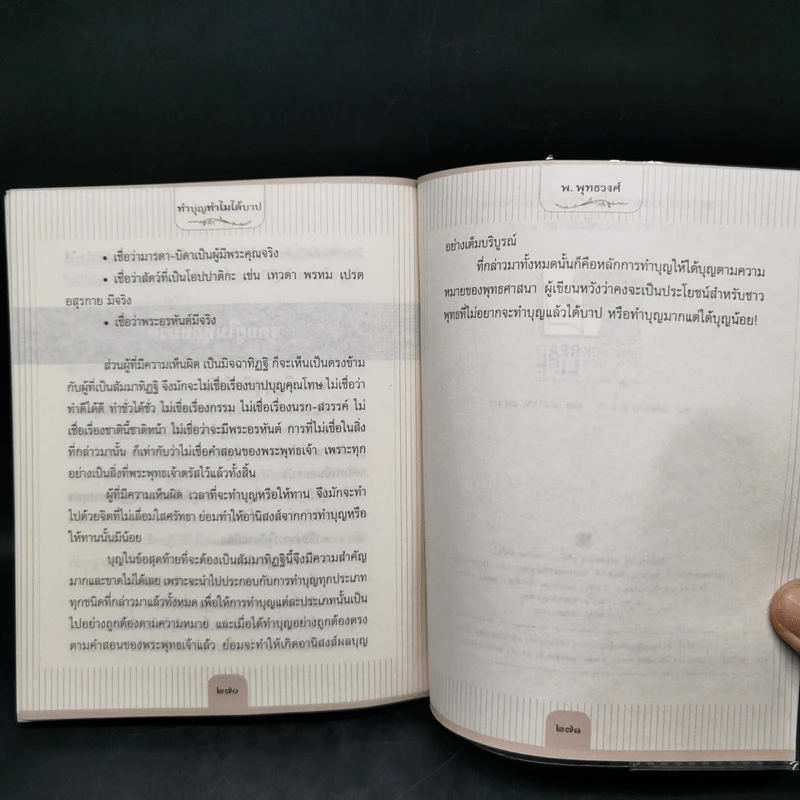 ทำบุญทำไมได้บาป
• เชื่อว่ามารดา-บิดาเป็นผู้มีพระคุณจริง
• เชื่อว่าสัตว์ที่เป็นโอปปาติกะ เช่น เทวดา พรหม เปรต
อสุรกาย มีจริง
• เชื่อว่าพระอรหันต์มีจริง
ส่วนผู้ที่มีความเห็นผิด เป็นมิจฉาทิฏฐิ ก็จะเห็นเป็นตรงข้าม
กับผู้ที่เป็นสัมมาทิฏฐิ จึงมักจะไม่เชื่อเรื่องบาปบุญคุณโทษ ไม่เชื่อว่า
ทำดีได้ดี ทำชั่วได้ชั่ว ไม่เชื่อเรื่องกรรม ไม่เชื่อเรื่องนรก-สวรรค์ ไม่
เชื่อเรื่องชาตินี้ชาติหน้า ไม่เชื่อว่าจะมีพระอรหันต์ การที่ไม่เชื่อในสิ่ง
ที่กล่าวมานั้น ก็เท่ากับว่าไม่เชื่อคำสอนของพระพุทธเจ้า เพราะทุก
อย่างเป็นสิ่งที่พระพุทธเจ้าตรัสไว้แล้วทั้งสิ้น
ผู้ที่มีความเห็นผิด เวลาที่จะทำบุญหรือให้ทาน จึงมักจะทำ
ไปด้วยจิตที่ไม่เลื่อมใสศรัทธา ย่อมทำให้อานิสงส์จากการทำบุญหรือ
ให้ทานนั้นมีน้อย
บุญในข้อสุดท้ายที่จะต้องเป็นสัมมาทิฏฐินี้จึงมีความสำคัญ
มากและขาดไม่ได้เลย เพราะจะนำไปประกอบกับการทำบุญทุกประเภท
ทุกชนิดที่กล่าวมาแล้วทั้งหมด เพื่อให้การทำบุญแต่ละประเภทนั้นเป็น
ไปอย่างถูกต้องตามความหมาย และเมื่อได้ทำบุญอย่างถูกต้องตรง
ตามคำสอนของพระพุทธเจ้าแล้ว ย่อมจะทำให้เกิดอานิสงส์ผลบุญ
๒๗๐
พ. พุทธวงศ์
อย่างเต็มบริบูรณ์
ที่กล่าวมาทั้งหมดนั้นก็คือหลักการทำบุญให้ได้บุญตามความ
หมายของพุทธศาสนา ผู้เขียนหวังว่าคงจะเป็นประโยชน์สำหรับชาว
พุทธที่ไม่อยากจะทำบุญแล้วได้บาป หรือทำบุญมากแต่ได้บุญน้อย!
๒๗๑